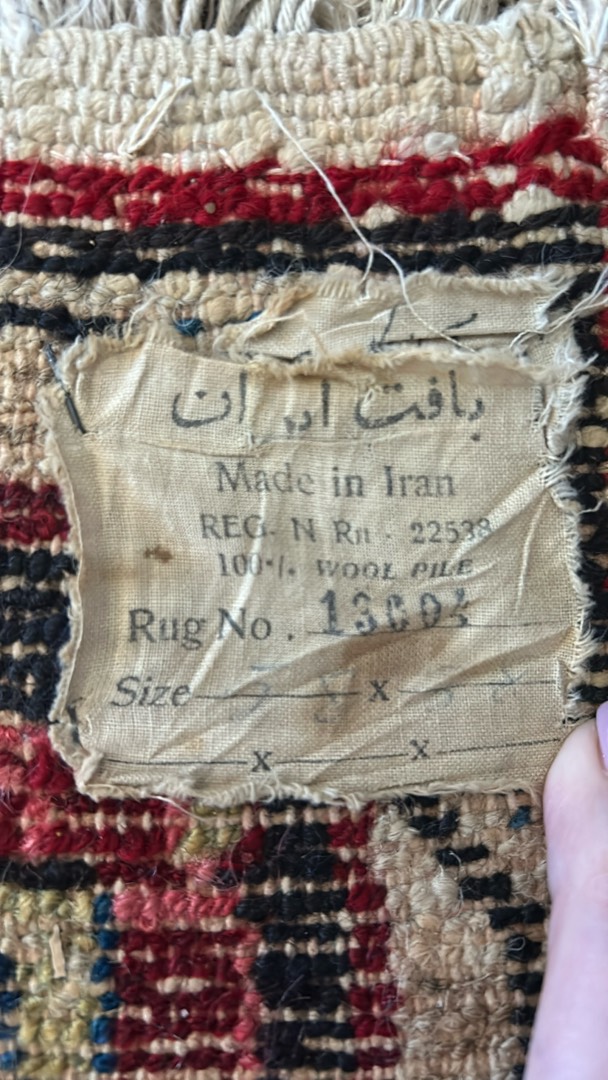 بافت ایران
Made in Iran
REG. N Rn . 22538
100 ·/. WOOL PILE
Rug No . 13004
Size x
x x